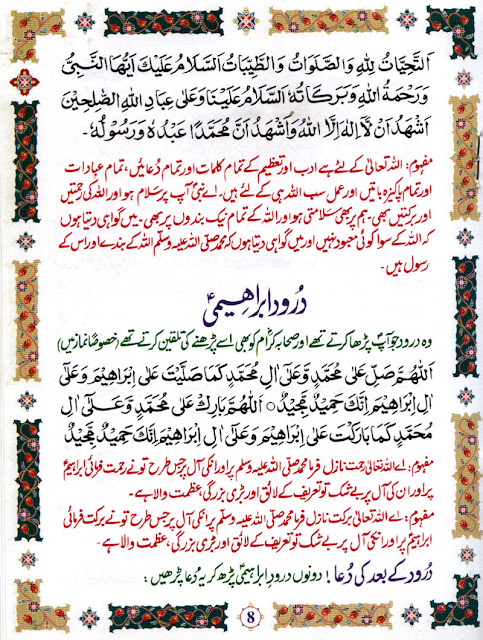 اَلتَّحِيَّاتُ لِلّٰهِ وَالصَّلَوَاتُ وَالطَّيِّبَاتُ اَلسَّلَامُ عَلَيْكَ اَيُّهَا النَّبِيُّ
وَرَحْمَةُ اللّٰهِ وَبَرَكَاتُهٗ اَلسَّلَامُ عَلَيْنَا وَعَلٰى عِبَادِ اللّٰهِ الصّٰلِحِيْنَ
اَشْهَدُ اَنْ لَّآ اِلٰهَ اِلَّا اللّٰهُ وَاَشْهَدُ اَنَّ مُحَمَّدًا عَبْدُهٗ وَرَسُوْلُهٗ۔
مفہوم: اللہ تعالیٰ کے لئے ہے ادب اور تعظیم کے تمام کلمات اور تمام دُعائیں، تمام عبادات
اور تمام پاکیزہ باتیں اور عمل سب اللہ ہی کے لئے ہیں۔ اے نبیؐ آپ پر سلام ہو اور اللہ کی رحمتیں
اور برکتیں بھی۔ ہم پر بھی سلامتی ہو اور اللہ کے تمام نیک بندوں پر بھی۔ میں گواہی دیتا ہوں
کہ اللہ کے سوا کوئی معبود نہیں اور میں گواہی دیتا ہوں کہ محمد صلی اللہ علیہ وسلم اللہ کے بندے اور اس کے
رسول ہیں۔
درود ابراھیمیؑ
وہ درود جو آپؐ پڑھا کرتے تھے اور صحابہ کرامؓ کو بھی اسے پڑھنے کی تلقین کرتے تھے (خصوصًا نماز میں)
اَللّٰهُمَّ صَلِّ عَلٰى مُحَمَّدٍ وَّعَلٰٓى اٰلِ مُحَمَّدٍ كَمَا صَلَّيْتَ عَلٰٓى اِبْرَاهِيْمَ وَعَلٰٓى
اٰلِ اِبْرَاهِيْمَ اِنَّكَ حَمِيْدٌ مَّجِيْدٌ ○ اَللّٰهُمَّ بَارِكْ عَلٰى مُحَمَّدٍ وَّعَلٰٓى اٰلِ
مُحَمَّدٍ كَمَا بَارَكْتَ عَلٰٓى اِبْرَاهِيْمَ وَعَلٰٓى اٰلِ اِبْرَاهِيْمَ اِنَّكَ حَمِيْدٌ مَّجِيْدٌ
مفہوم: اے اللہ تعالیٰ رحمت نازل فرما محمد صلی اللہ علیہ وسلم پر اور انکی آل پر جس طرح تو نے رحمت فرمائی ابراہیمؑ
پر اور ان کی آل پر بے شک تو تعریف کے لائق اور بڑی بزرگی، عظمت والا ہے۔
مفہوم: اے اللہ تعالیٰ برکت نازل فرما محمد صلی اللہ علیہ وسلم پر انکی آل پر جس طرح تو نے برکت فرمائی
ابراہیمؑ پر اور انکی آل پر بے شک تو تعریف کے لائق اور بڑی بزرگی، عظمت والا ہے۔
درود کے بعد کی دُعا! دونوں درود ابراہیمیؑ پڑھ کر یہ دُعا پڑھیں:
8